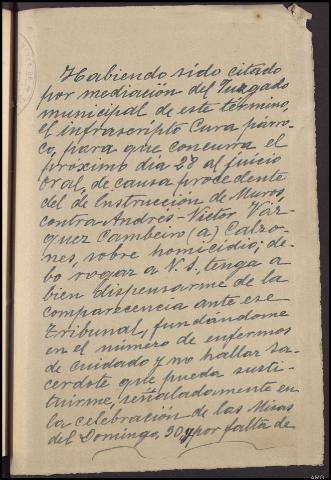 Habiendo sido citado
por mediación del Juzgado
municipal de este término,
el infrascripto Cura párro-
co, para que concurra el
próximo dia 28 al juicio
oral, de causa procedente
del de Instrucción de Muros,
contra Andrés-Victor Váz-
quez Cambeiro (a) Calzo-
nes, sobre homicidio; de-
bo rogar a V. S. tenga a
bien dispensarme de la
comparecencia ante ese
Tribunal, fundándome
en el número de enfermos
de cuidado y no hallar sa-
cerdote que pueda susti-
tuirme, señaladamente en
la celebración de las Misas
del Domingo, 30, y por falta de